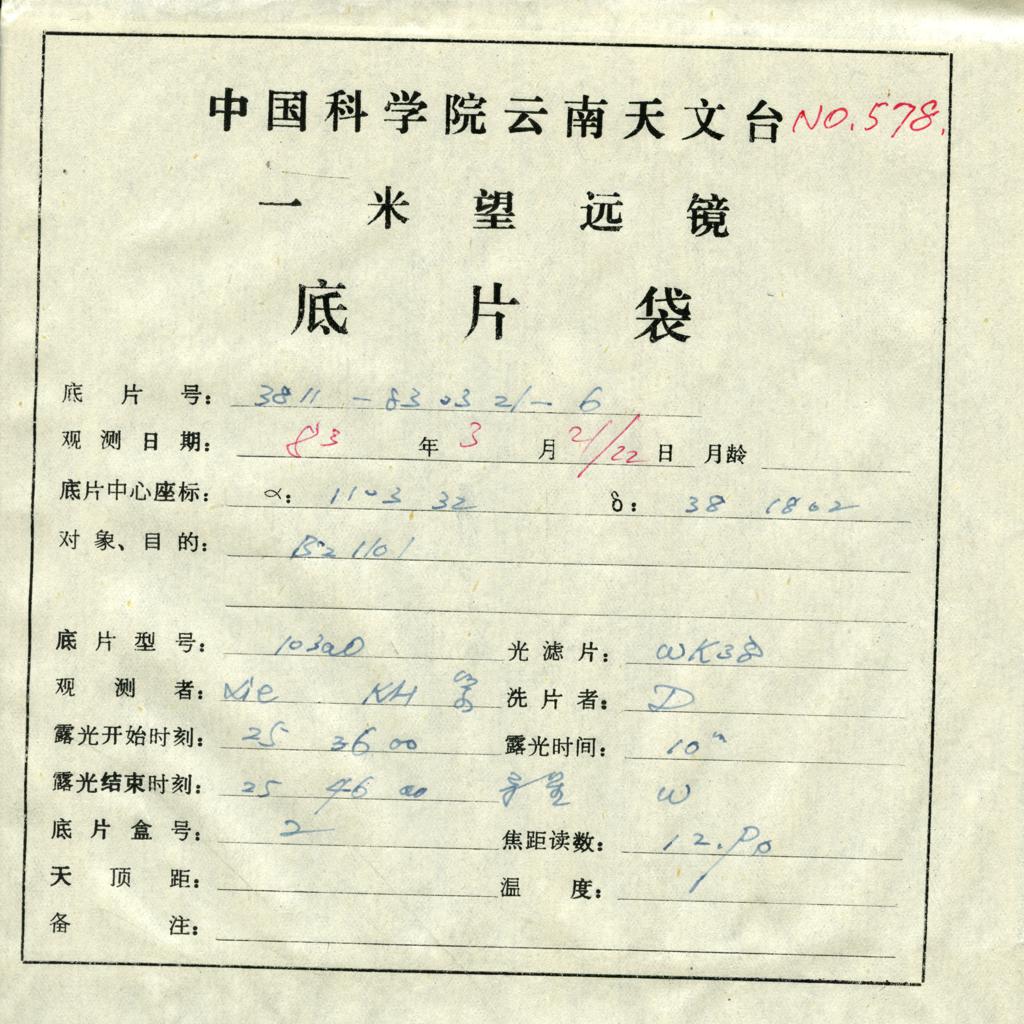 中国科学院云南天文台 NO.578.
一米望远镜
底片袋
底片号: 3811-830321-6
观测日期: 83年3月21/22日 月龄
底片中心座标: α: 1103 32 δ: 38 1802
对象、目的: B2 1101
底片型号: 103aO 光滤片: WK38
观测者: Xie KH 洗片者: D
露光开始时刻: 25 36 00 露光时间: 10m
露光结束时刻: 25 46 00 导星 W
底片盒号: 2 焦距读数: 12.90
天顶距: 温度:
备注: